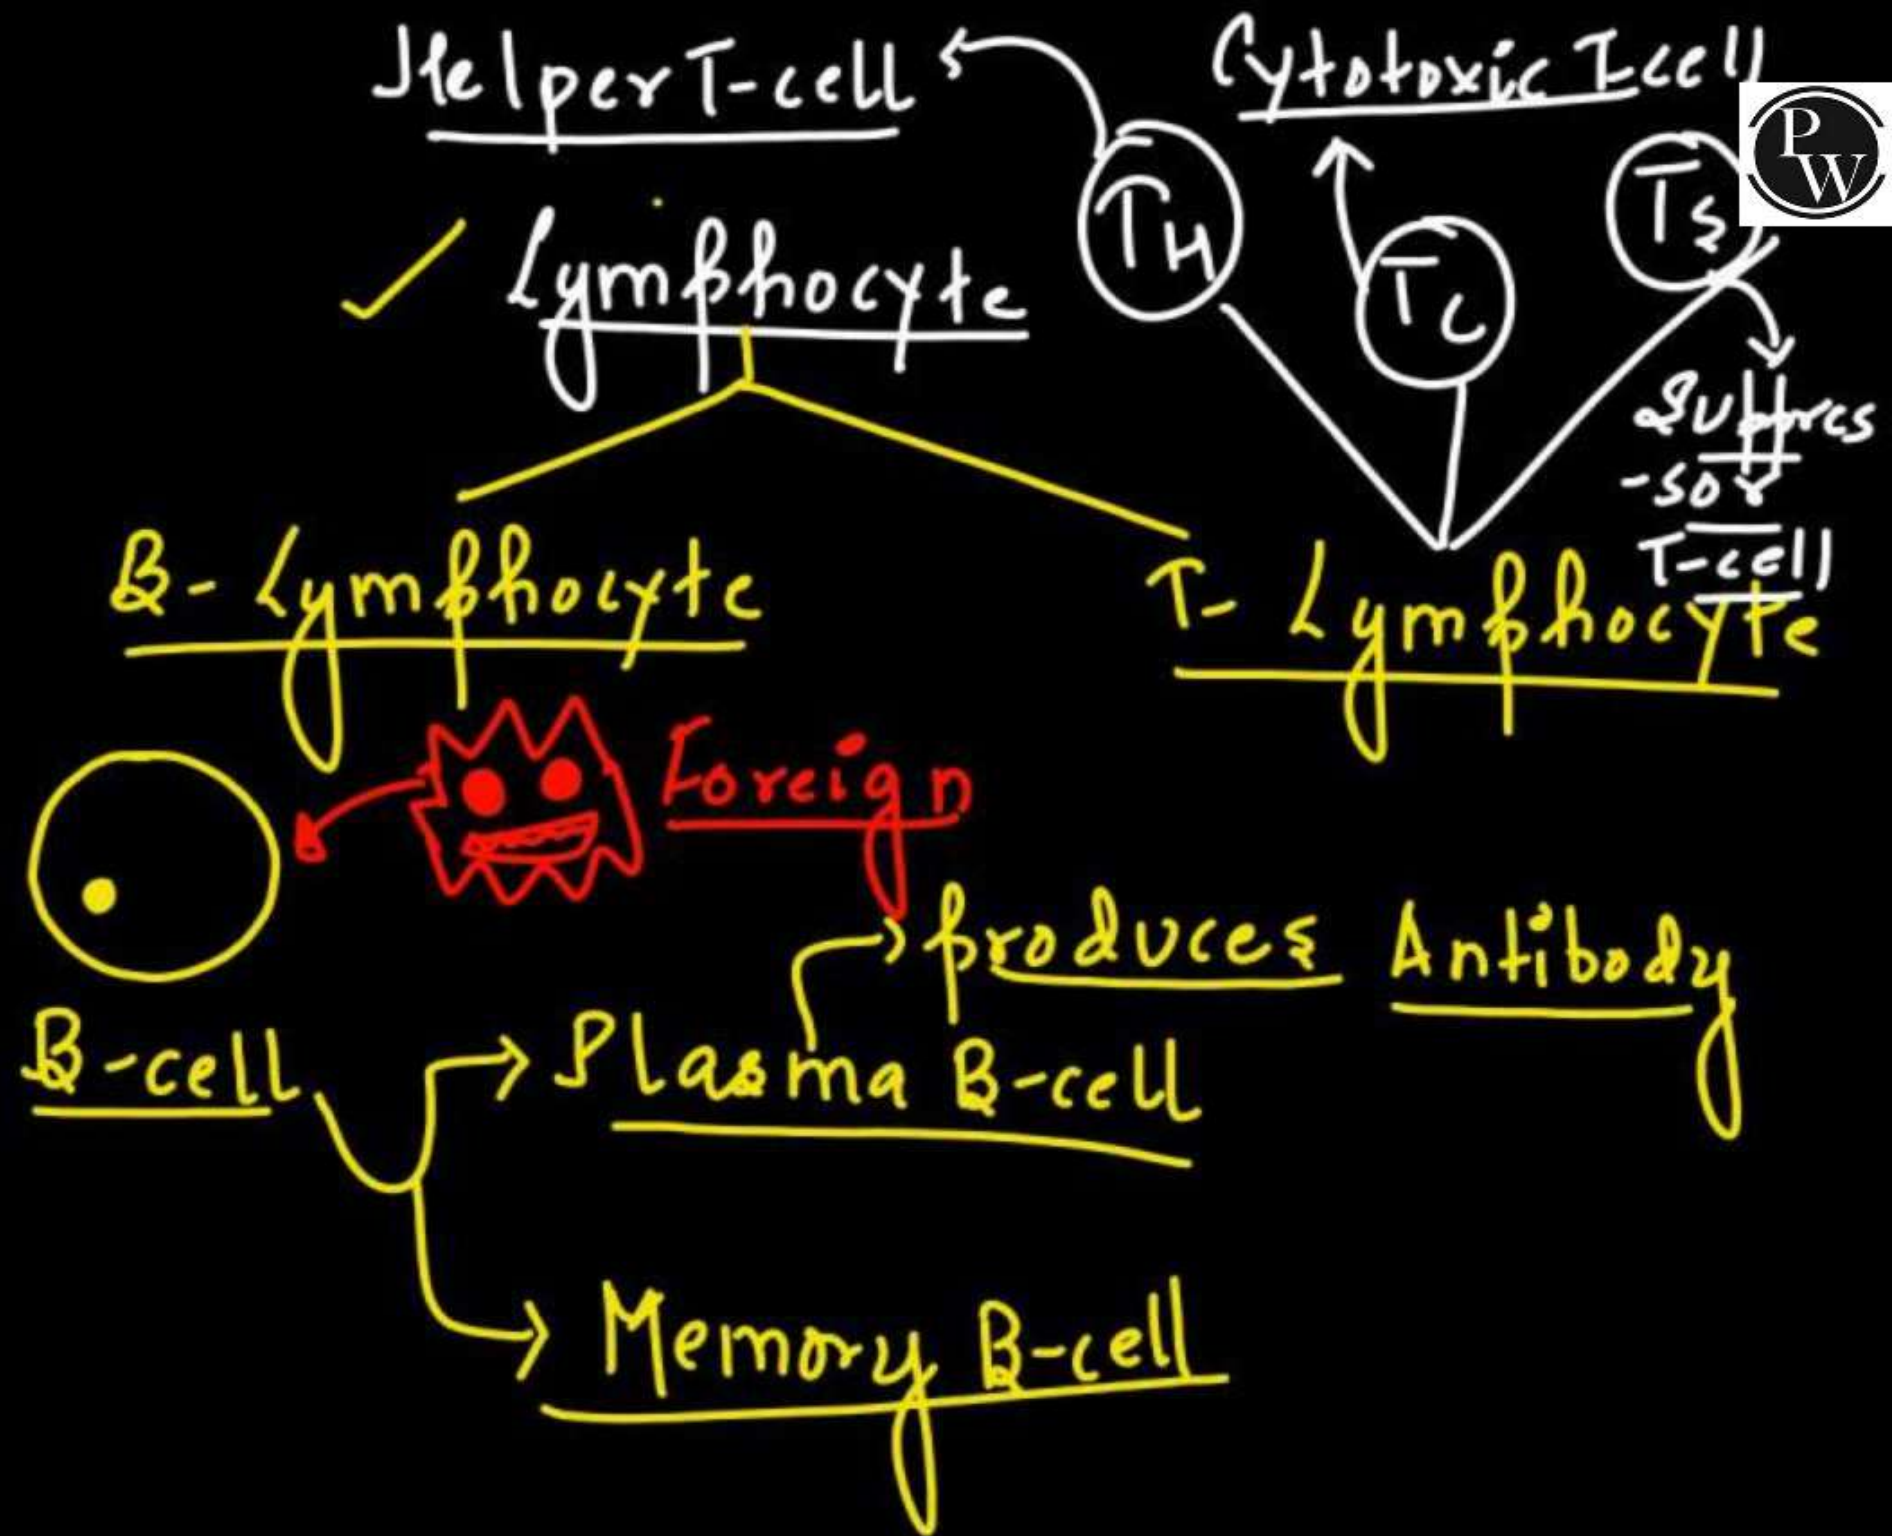 Helper T-cell
Cytotoxic T-cell
PW
TH
TC
TS
Lymphocyte
Suppres
-sor
T-cell
B-Lymphocyte
T-Lymphocyte
Foreign
produces Antibody
B-cell
Plasma B-cell
Memory B-cell